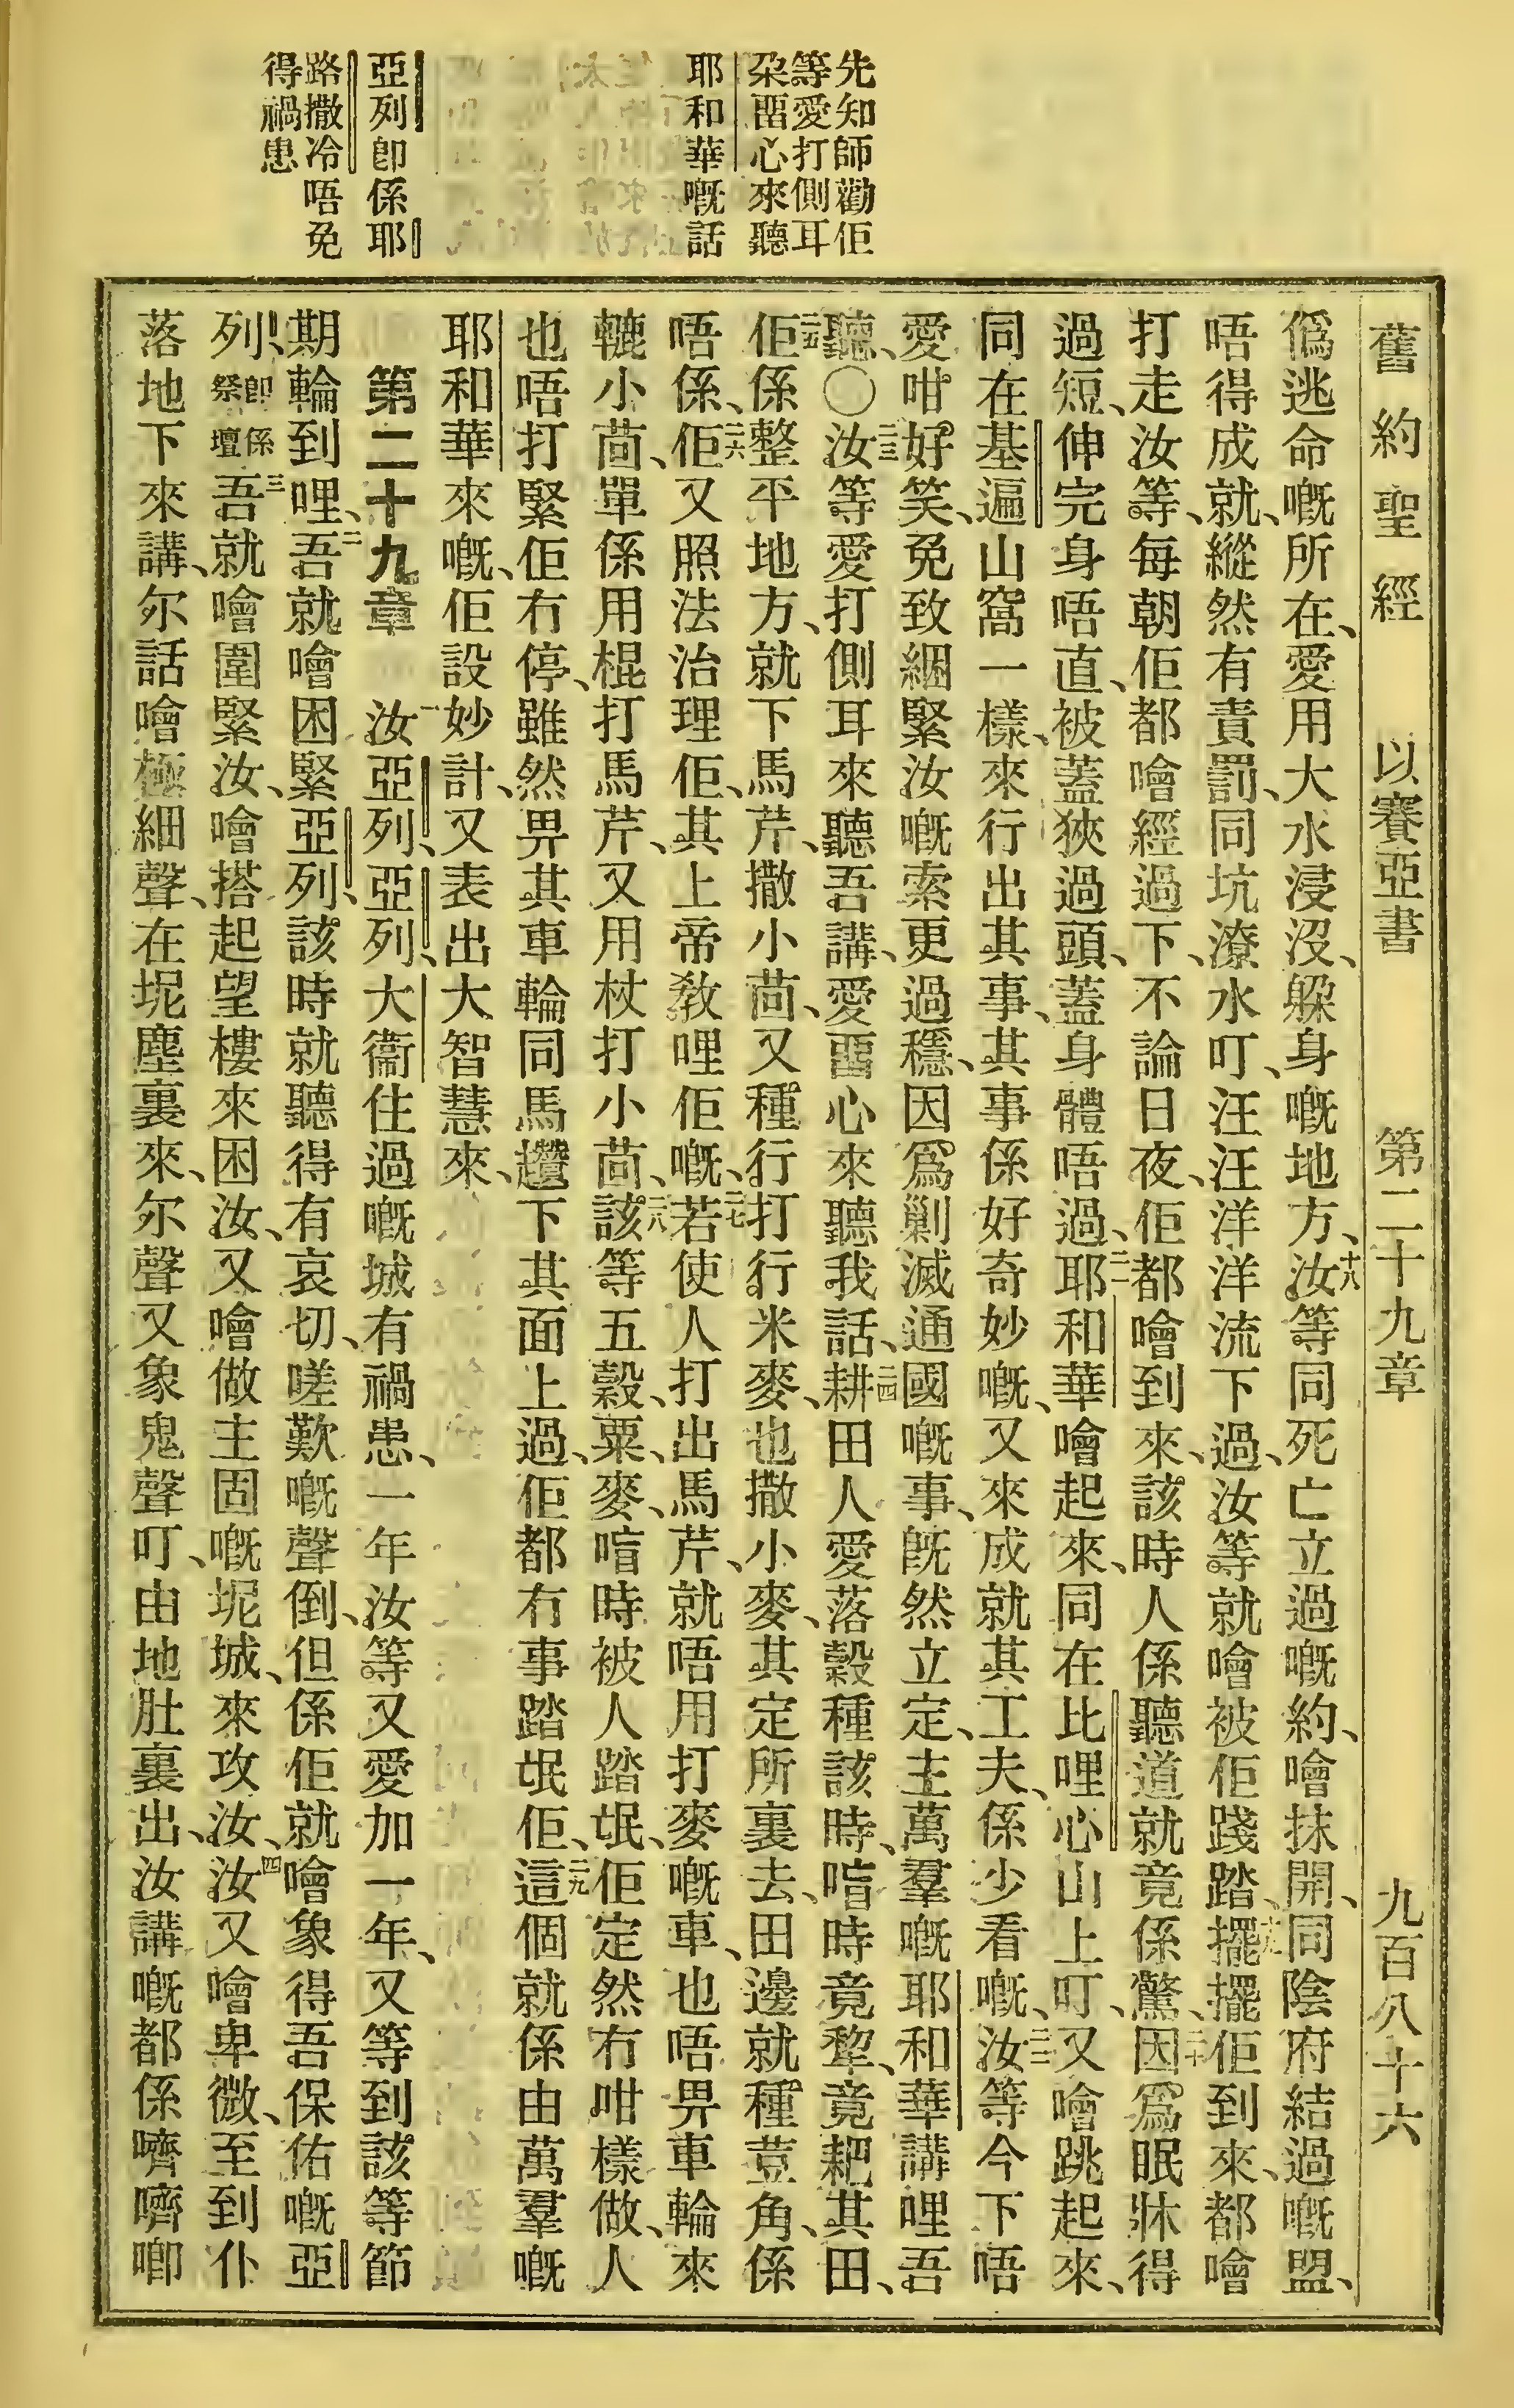 舊約聖經 以賽亞書 第二十九章 九百八十六
先知師勸佢
等愛打側耳
朶畱心來聽
耶和華嘅話
亞列卽係耶
路撒冷唔免
得禍患
僞逃命嘅所在、愛用大水浸沒、躱身嘅地方、十八汝等同死亡立過嘅約、噲抹開、同陰府結過嘅盟、
唔得成就、縱然有責罰、同坑潦水叮、汪汪洋洋流下過、汝等就噲被佢踐踏、十九擺擺佢到來、都噲
打走汝等、每朝佢都噲經過下、不論日夜、佢都噲到來、該時人係聽道就竟係驚、二十因爲眠牀得
過短、伸完身唔直、被蓋狹過頭、蓋身體唔過、二一耶和華噲起來、同在比哩心山上叮、又噲跳起來、
同在基遍山窩一樣、來行出其事、其事係好奇妙嘅、又來成就其工夫、係少看嘅、二二汝等今下唔
愛咁好笑、免致綑緊汝嘅索更過穩、因爲剿滅通國嘅事、旣然立定、主萬羣嘅耶和華講哩吾
聽、〇二三汝等愛打側耳來聽吾講、愛畱心來聽我話、二四耕田人愛落穀種該時、喑時竟犂、竟耙其田、
二五佢係整平地方、就下馬芹、撒小茴、又種行打行米麥、也撒小麥、其定所裏去、田邊就種荳角、係
唔係、二六佢又照法治理佢、其上帝敎哩佢嘅、二七若使人打出馬芹、就唔用打麥嘅車、也唔畀車輪來
轆小茴、單係用棍打馬芹、又用杖打小茴、二八該等五穀、粟麥、喑時被人踏氓、佢定然冇咁樣做、人
也唔打緊佢冇停、雖然畀其車輪同馬趲下其面上過、佢都冇事踏氓佢、二九這個就係由萬羣嘅
耶和華來嘅、佢設妙計、又表出大智慧來、
第二十九章 一汝亞列、亞列、大衞住過嘅城有禍患、一年汝等又愛加一年、又等到該等節
期輪到哩、二吾就噲困緊亞列、該時就聽得有哀切、嗟歎嘅聲倒、但係佢就噲象得吾保佑嘅亞
列、卽係祭壇三吾就噲圍緊汝、噲搭起望樓來困汝、又噲做主固嘅坭城、來攻汝、四汝又噲卑微、至到仆
落地下來講、尔話噲極細聲、在坭塵裏來、尔聲又象鬼聲叮、由地肚裏出、汝講嘅都係嚌嚌唧